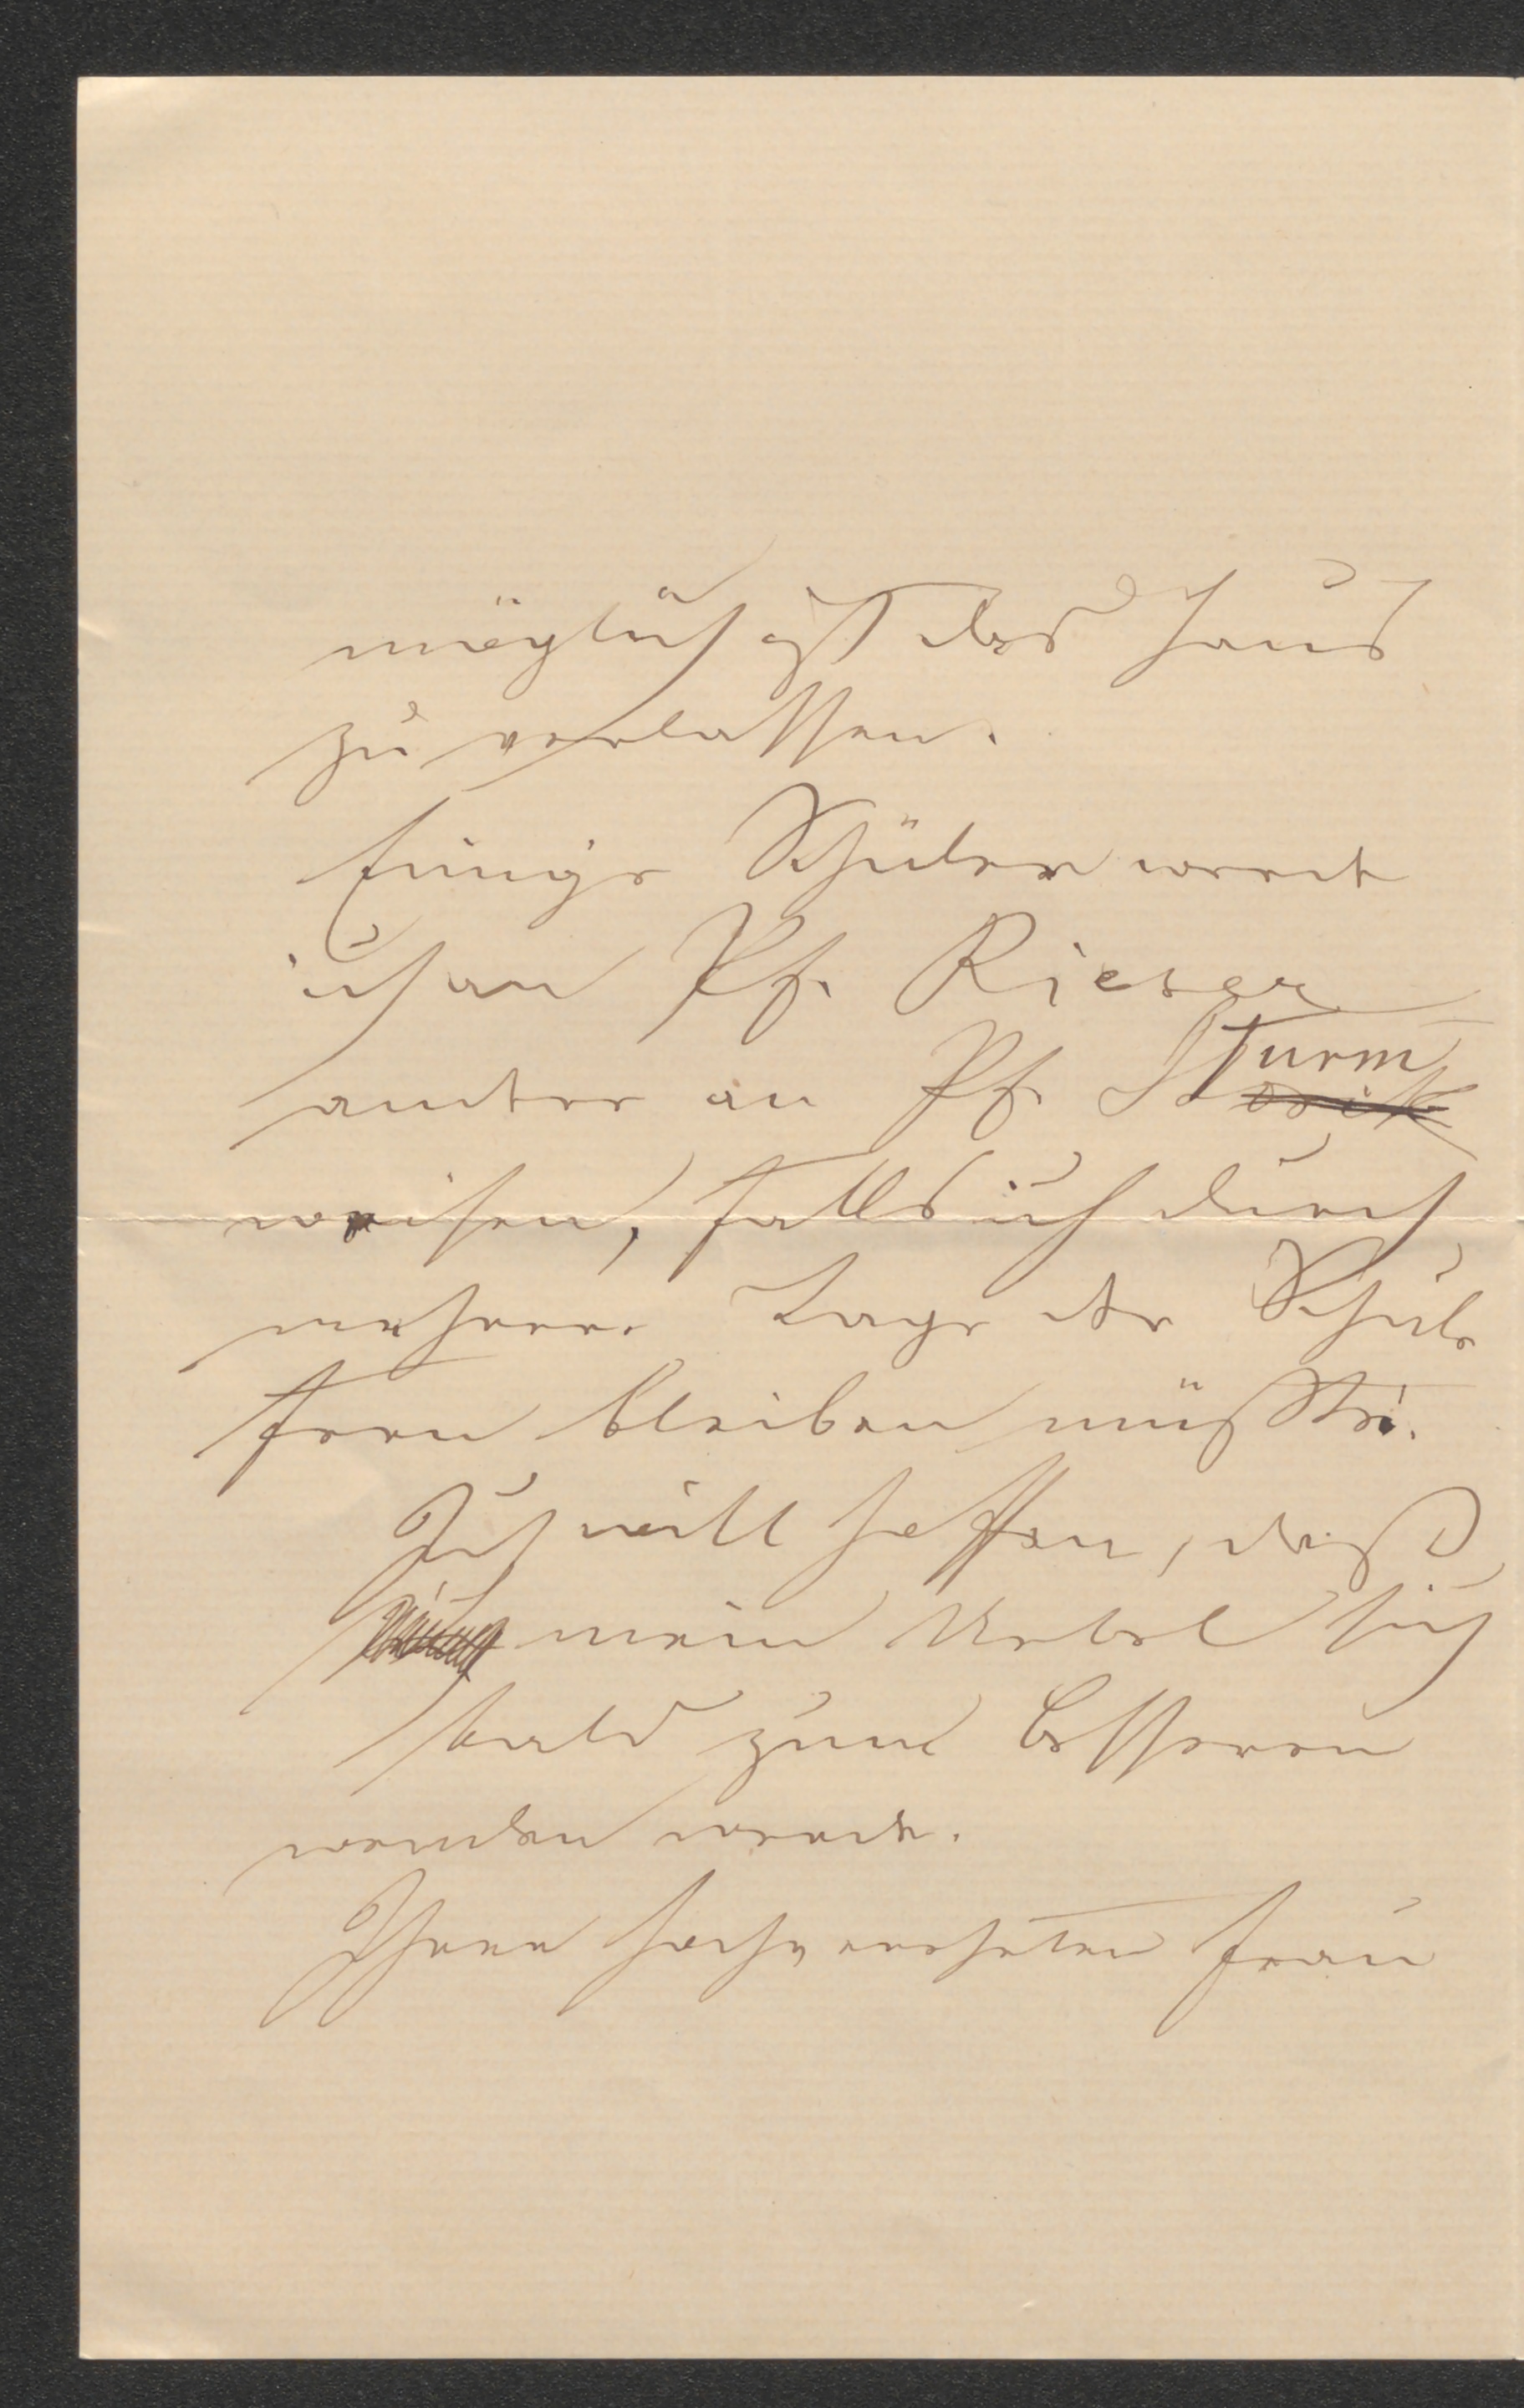 möglich ist das Haus
zu verlassen.
Einige Schüler werde
ich an Pf. Rieser
andere an Pf. Sturm
weisen, falls ich durch
mehrere Tage der Schule
fern bleiben müßte.
Ich will hoffen, daß
mein Uebel sich
bald zum besseren
wenden werde.
Ihrer hochverehrten Frau